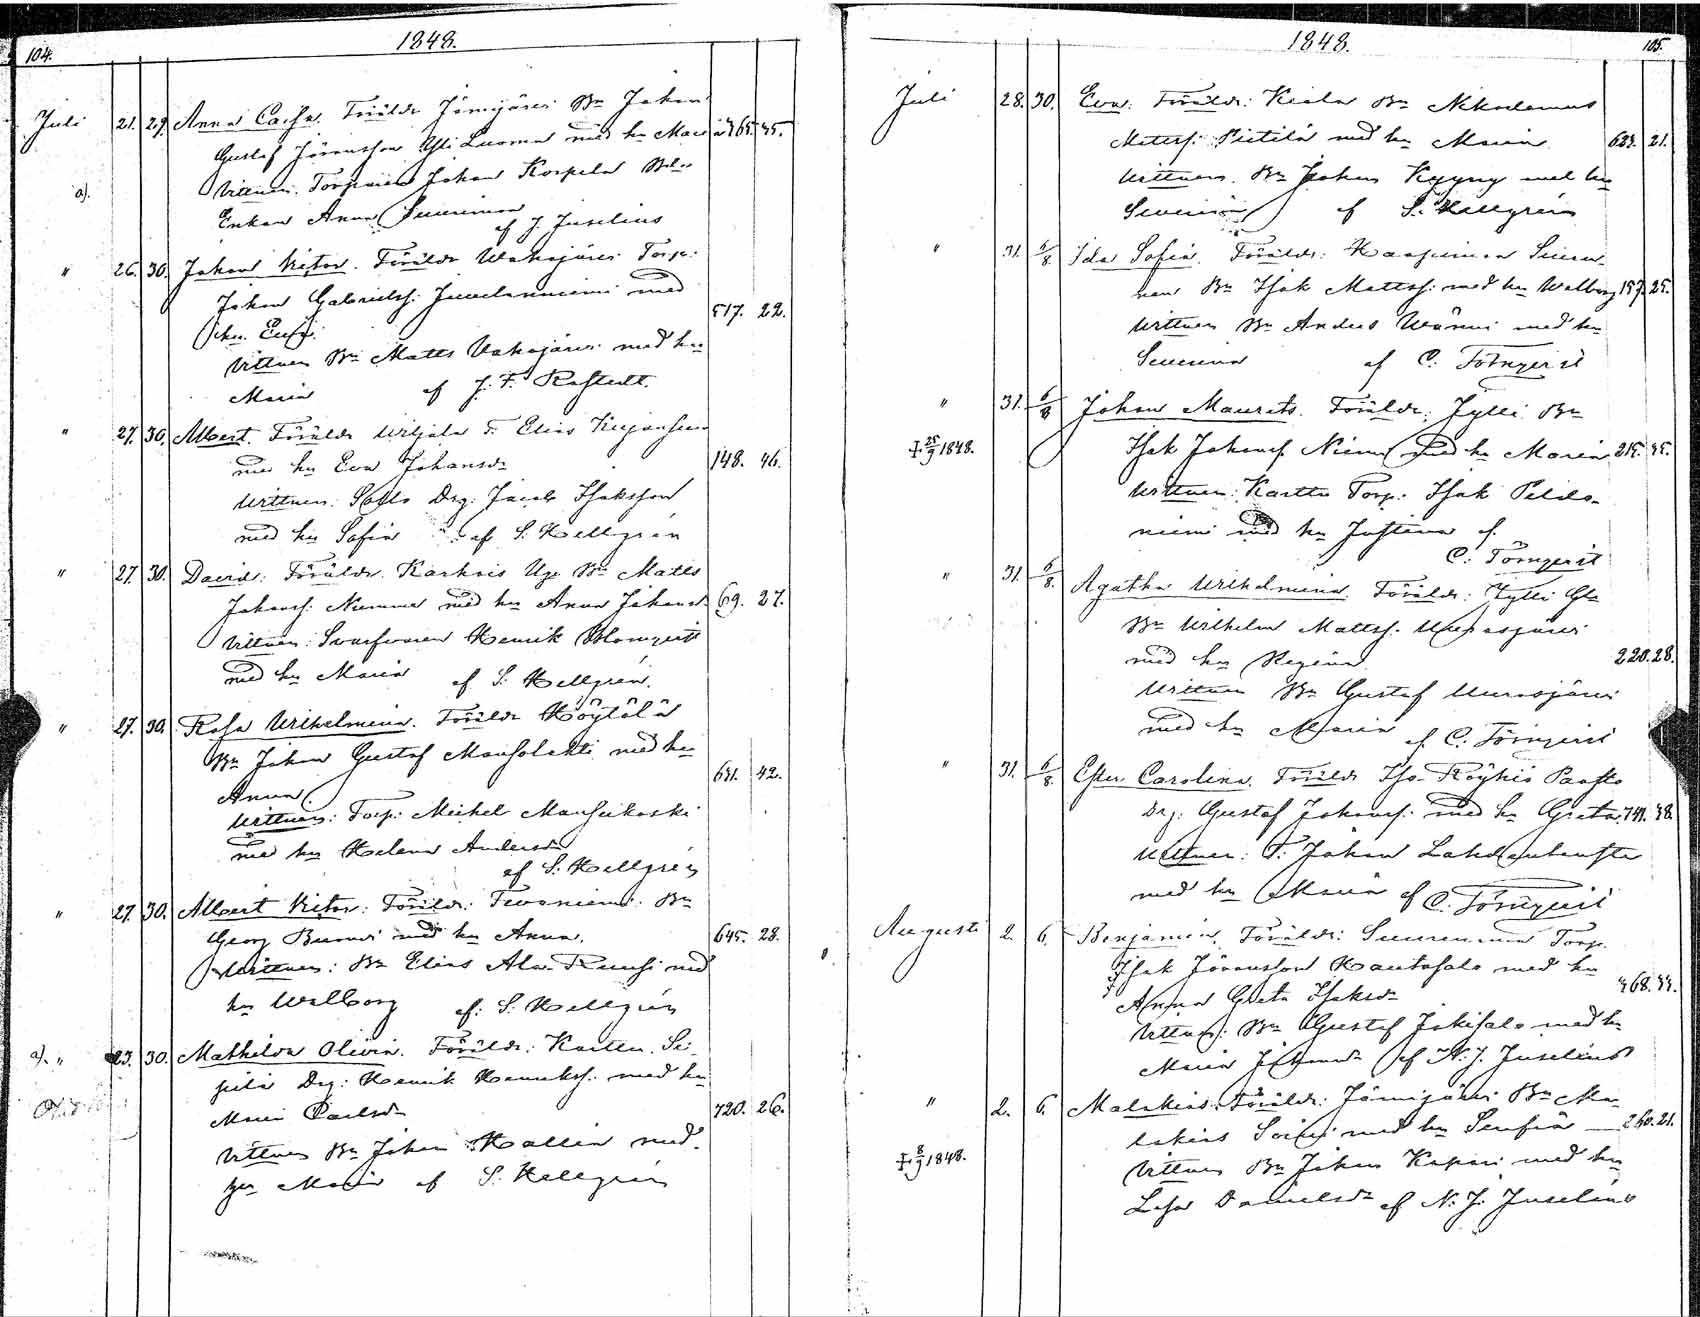 104.
1848.
Juli 21. 29. Anna Caisa. Föräldr. Jämijärvi Bn Johan
Gustaf Jöransson Yli Luoma med hu Maria 365. 35.
a). Vittnen. Torparen Johan Korpela
Enkan Anna Suurimaa
af J. Juselius
" 26. 30. Johan Victor. Föräldr. Wahojärvi Torp:
Johan Gabrielss: med 517. 22.
hu. Eufr:
Vittnen Bn Matts Wahojärvi med hu
Maria af J. F. Rostedt.
" 27. 30. Albert. Föräldr. Wiljala T. Elias
med hu Eva Johansdr 148. 46.
Wittnen: Drg: Jacob Isaksson
med hu Sofia af S. Hellgrén
" 27. 30. David. Föräldr. Karhois Bn Matts
Johanss: Numma med hu Anna Johansd. 69. 27.
Vittnen: Svarfvaren Henrik Blomqvist
med hu Maria af S. Hellgrén.
" 27. 30. Rosa Wilhelmina. Föräldr. Höytölä
Bn Johan Gustaf Mansolahti med hu
Anna. 631. 42.
Wittnen: Torp: Michel Mansikoski
med hu Helena Andersdr
af S. Hellgrén
" 27. 30. Albert Victor: Föräldr: Tevaniemi Bn
Georg med hu Anna. 645. 28.
Wittnen: Bn Elias Ala-Ruusi med
hu Walborg af: S. Hellgrén
a). " 23. 30. Mathilda Olivia. Föräldr: Karttu. Se-
pilä Drg: Henrik Henrikss. med hu
Maria Carlsdr 720. 26.
Vittnen Bn Johan Kallia med
hu Maria af S. Hellgrén
1848. 105.
Juli 28. 30. Eva. Föräldr: Kiala Bn Nikodemus
Mattss: Pietilä med hu Maria 623. 21.
Wittnen. Bn Johan Kyyny med hu
Severina af S. Hellgrén
" 31. 6/8. Ida Sofia. Föräldr: Haapimaa
Bn Isak Mattss. med hu Walborg 157. 25.
Wittnen Bn Anders Wänni med hu
Severina af C. Törnqvist
" 31. 6/8 Johan Maurits. Föräldr: Jylli Bn
† 25/9 1848. Isak Johanss. Niemi med hu Maria 215. 35.
Wittnen: Karttu Torp: Isak Peldo-
niemi med hu Justina af.
C. Törnqvist
" 31. 6/8. Agatha Wilhelmina. Föräldr: Jylli
Bn Wilhelm Mattss. Uurasjärvi
med hu Regina 220. 28.
Wittnen Bn Gustaf Uurasjärvi
med hu Maria af C. Törnqvist
" 31. 6/8 Ester Carolina. Föräldr Iso-Röyhiö
Drg: Gustaf Johanss. med hu Greta 741. 38.
Wittnen: T: Johan Lahdentausta
med hu Maria af C. Törnqvist
Augusti 2. 6. Benjamin. Föräldr: Suurimaa Torp.
Isak Jöransson Kautosalo med hu
Anna Greta Isaksdr 368. 33.
Vittnen: Bn Gustaf Jokisalo med hu
Maria af N. J. Juselius
" 2. 6. Malakias. Föräldr: Jämijärvi Bn Ma-
lakias Soini med hu Serafia 260. 21.
† 8/9 1848. Vittnen Bn Johan Kapari med hu
Lisa Danielsdr af N. J. Juselius